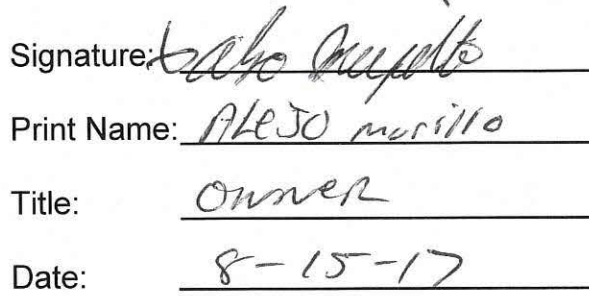 Signature:
Print Name: ALEJO murillo
Title: OWNER
Date: 8-15-17